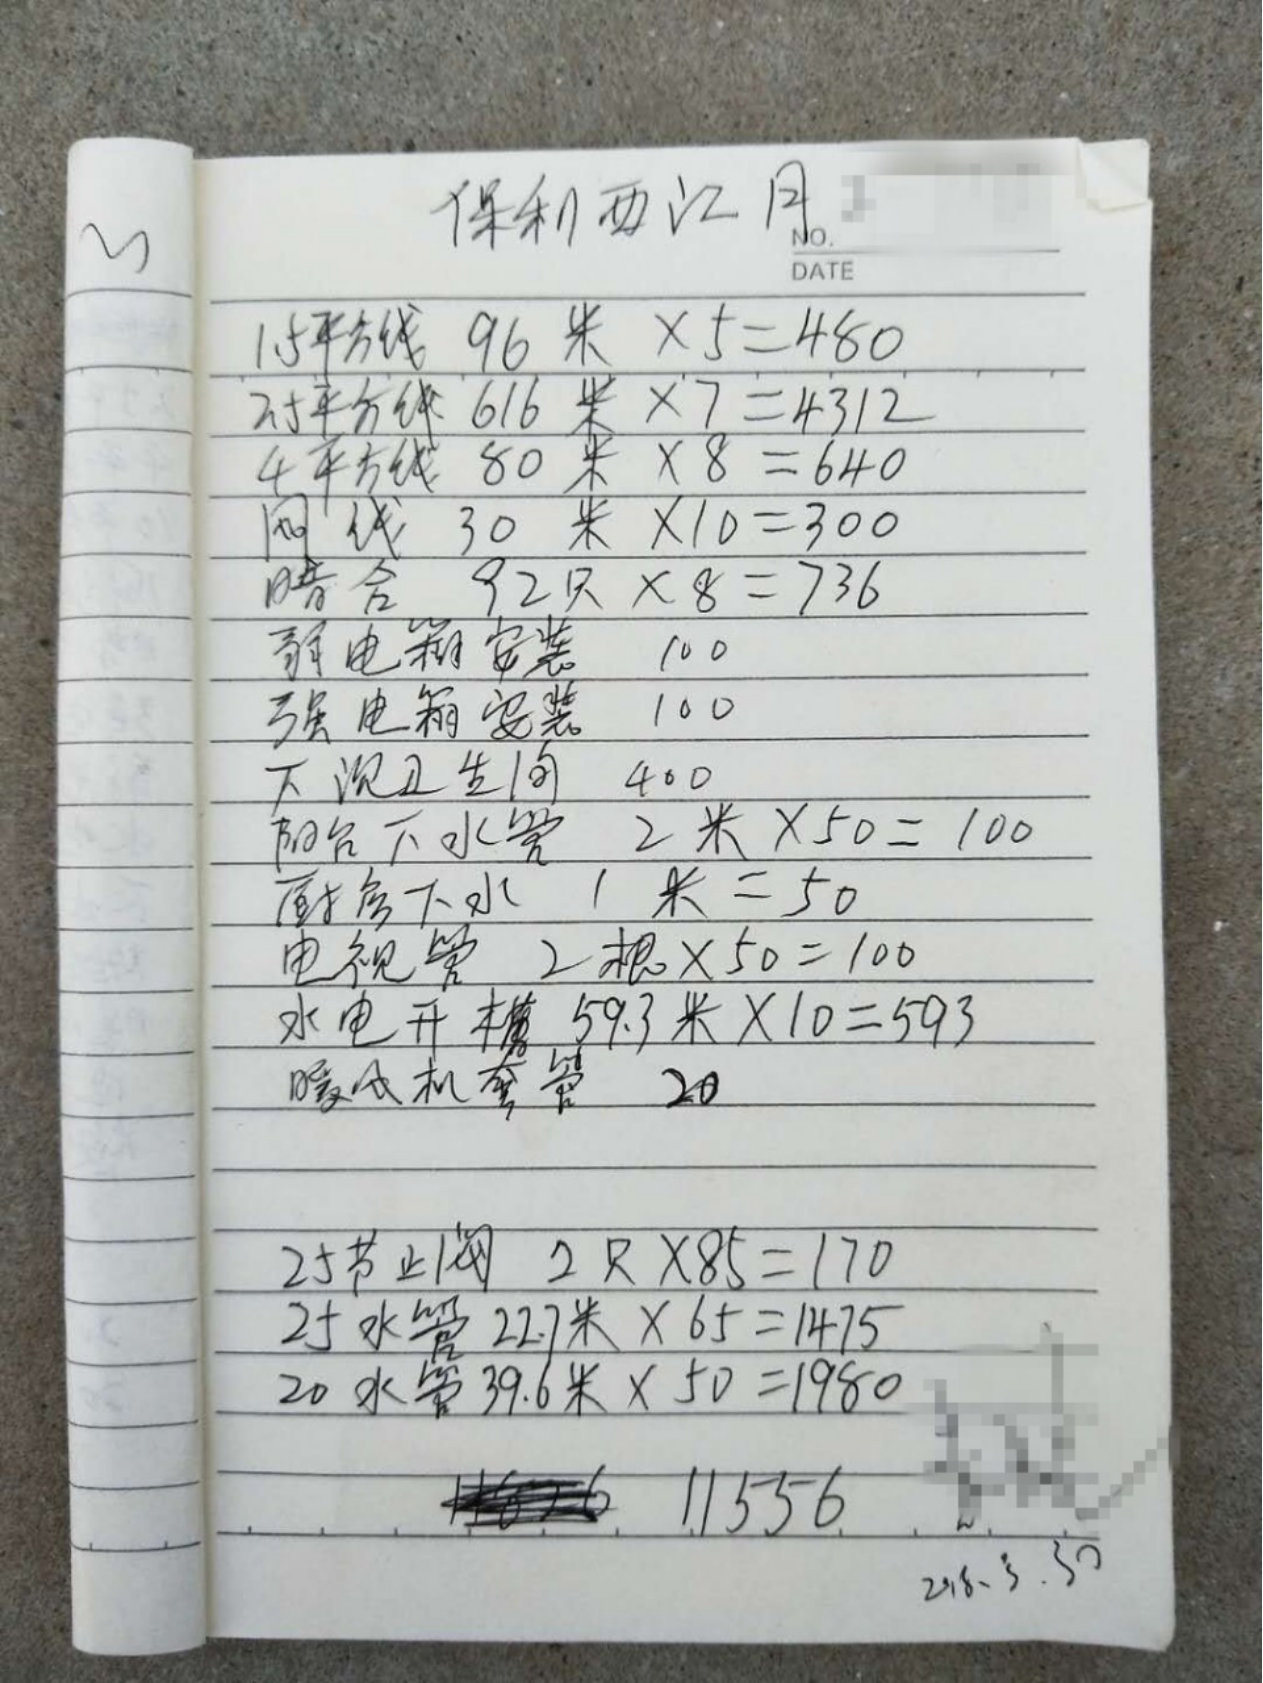 保利西江月
NO.
DATE
1.5平方线 96 米 ×5=480
2.5平方线 616 米 ×7=4312
4平方线 80 米 ×8=640
网线 30 米 ×10=300
暗合 92只 ×8=736
弱电箱安装 100
强电箱安装 100
下沉卫生间 400
阳台下水管 2米×50=100
厨房下水 1米=50
电视管 2根×50=100
水电开槽 59.3米×10=593
暖风机套管 20
25节止阀 2只×85=170
25水管 22.7米×65=1475
20水管 39.6米×50=1980
11556